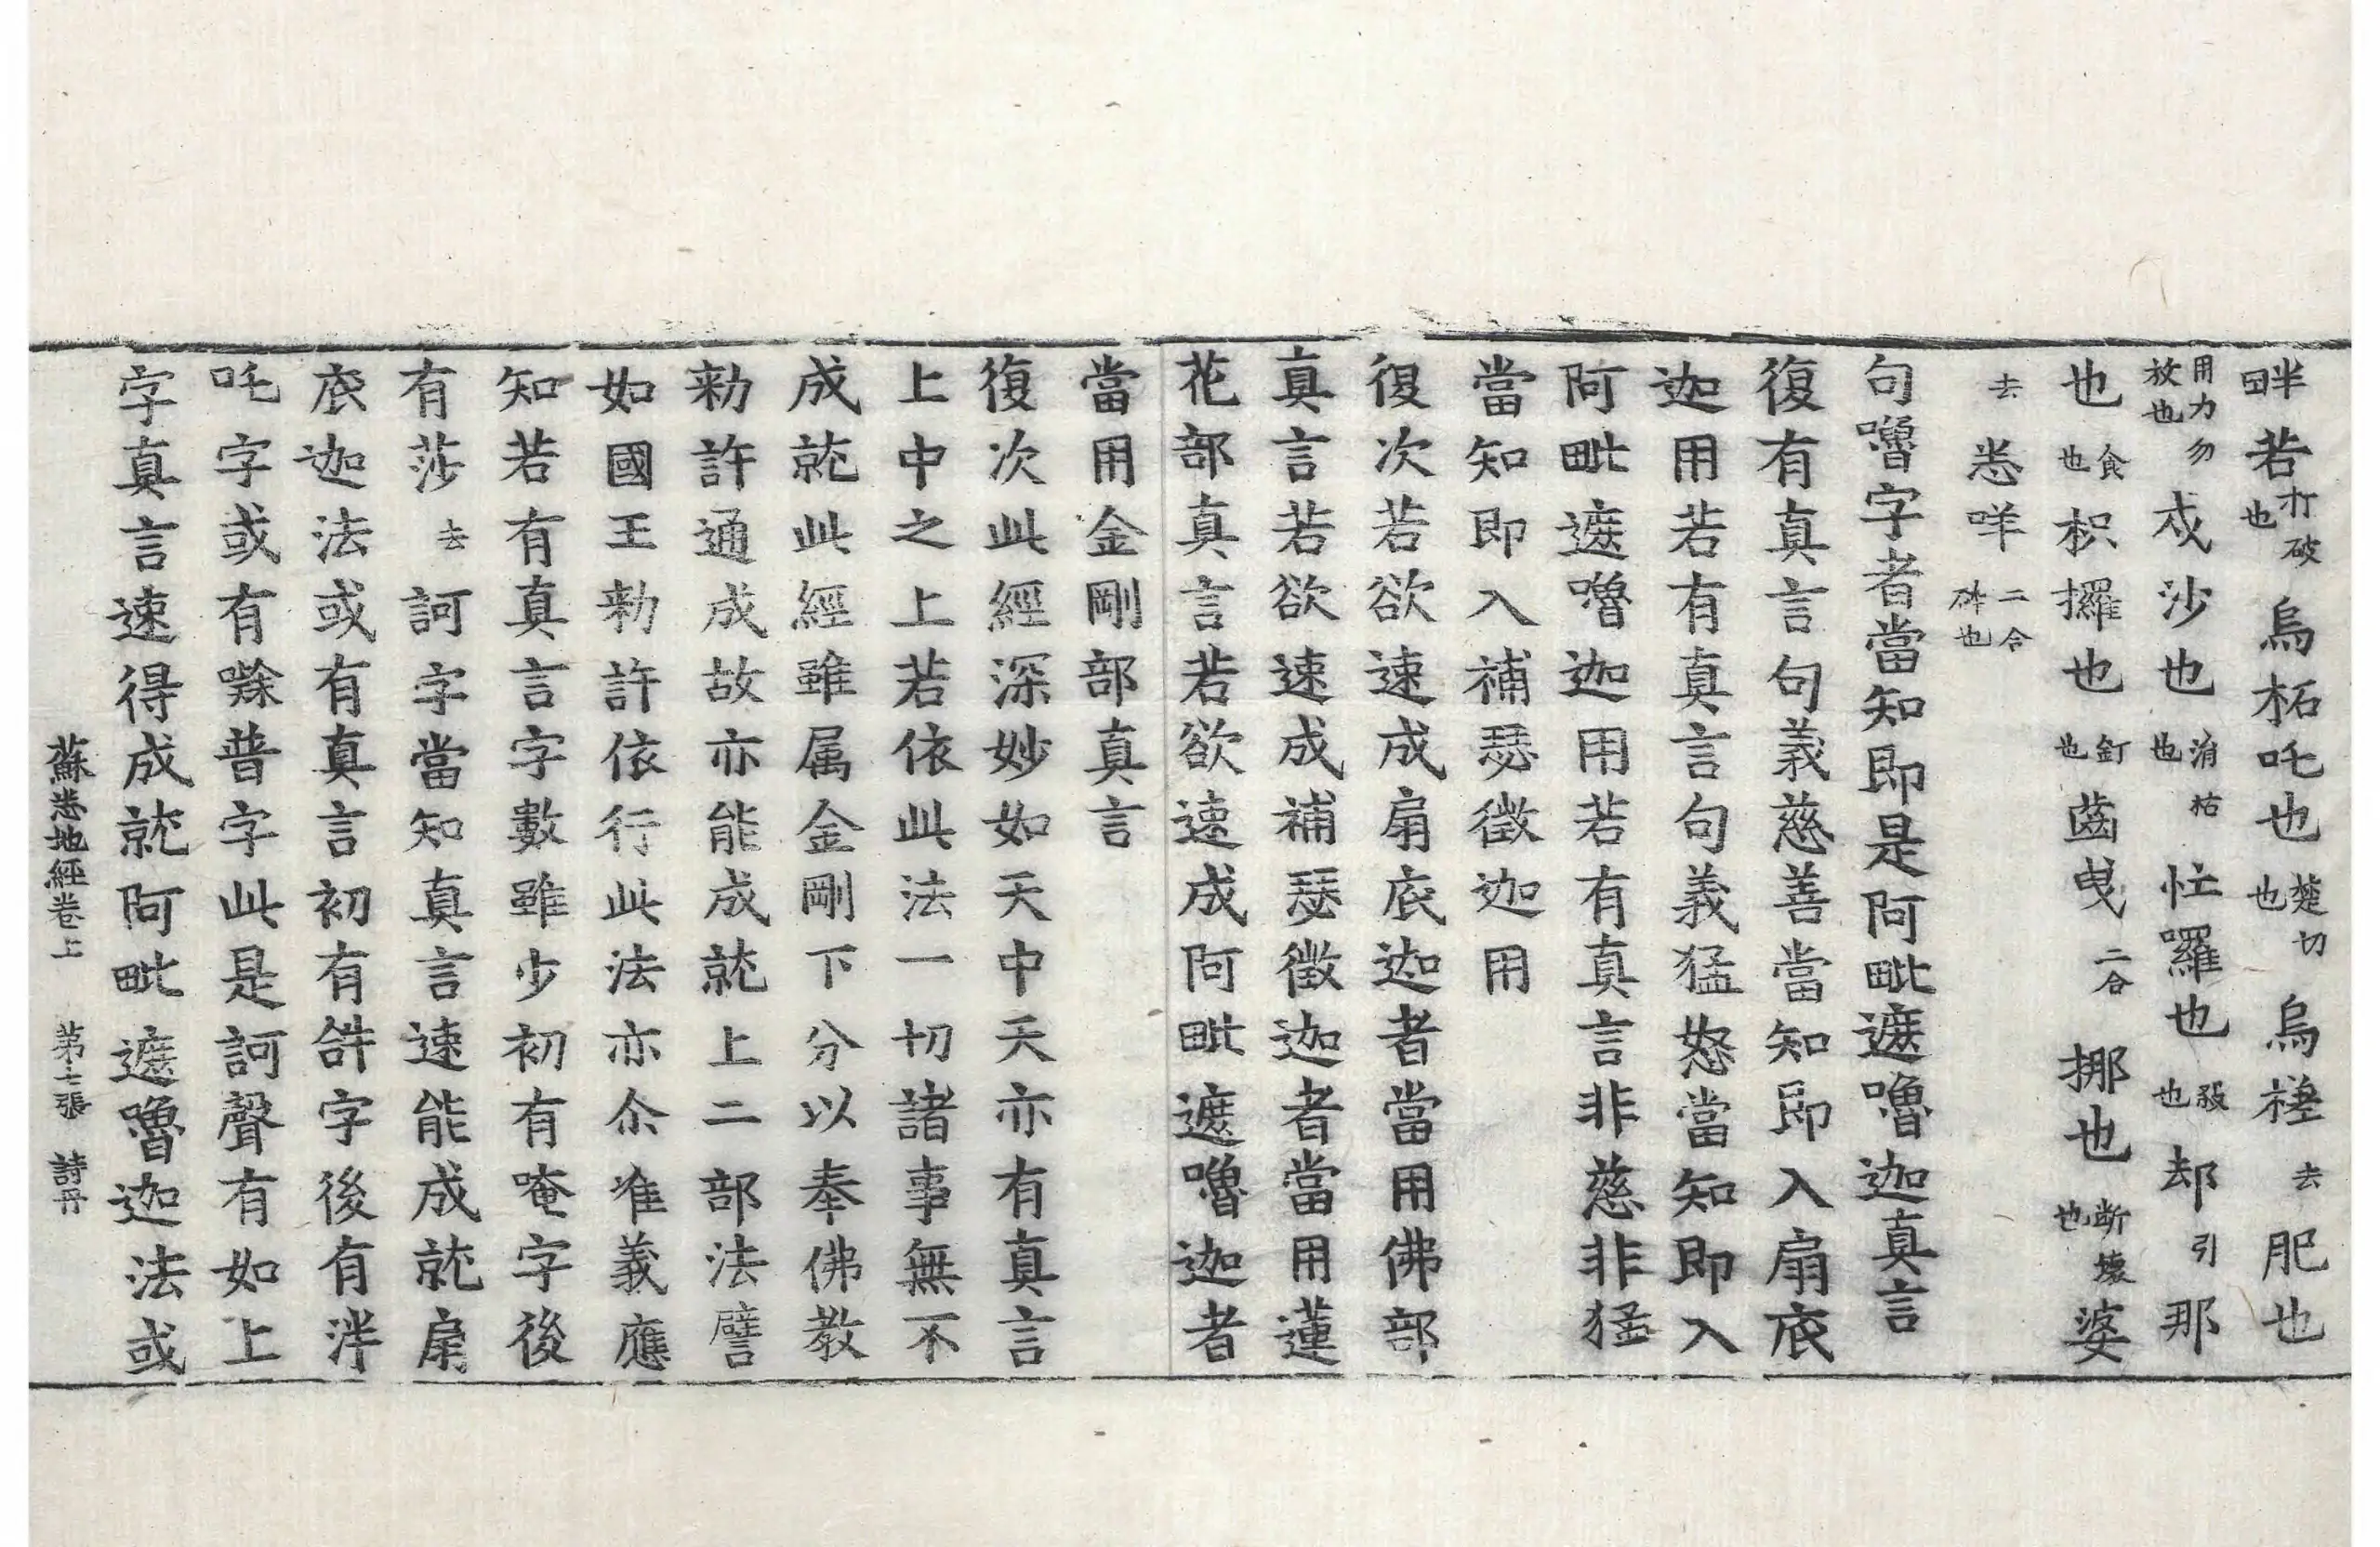 畔若打破也烏柘吒也楚切也烏槎去肥也
用力勿放也戍沙也消枯也忙囉也殺也却引那
也食也枳攞也釘也齒曳二合挪也断壞也婆
去悉咩二合碎也
句嚕字者當知即是阿毗遮嚕迦真言
復有真言句義慈善當知即入扇底
迦用若有真言句義猛怒當知即入
阿毗遮嚕迦用若有真言非慈非猛
當知即入補瑟徵迦用
復次若欲速成扇底迦者當用佛部
真言若欲速成補瑟徵迦者當用蓮
花部真言若欲速成阿毗遮嚕迦者
當用金剛部真言
復次此經深妙如天中天亦有真言
上中之上若依此法一切諸事無不
成就此經雖属金剛下分以奉佛教
勑許通成故亦能成就上二部法譬
如國王勑許依行此法亦尒准義應
知若有真言字數雖少初有唵字後
有莎去訶字當知真言速能成就扇
底迦法或有真言初有𤙖字後有泮
吒字或有㘑普字此是訶聲有如上
字真言速得成就阿毗遮嚕迦法或
蘇悉地經卷上 第七張 詩丹